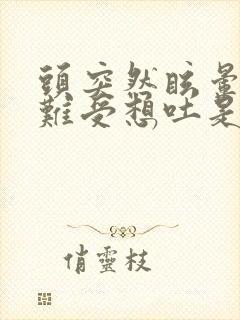 頭突然眩暈
難受想吐是
俏靈枝